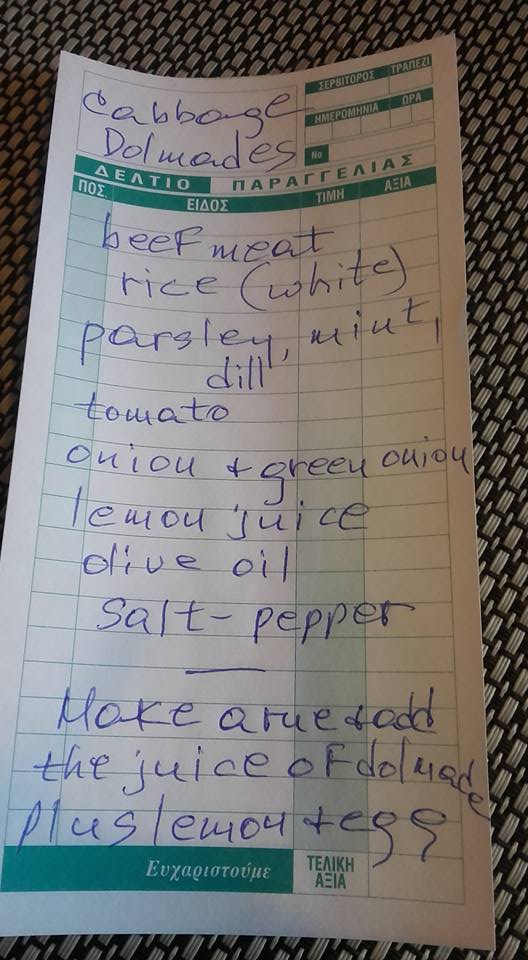 Cabbage
Dolmades
ΣΕΡΒΙΤΟΡΟΣ ΤΡΑΠΕΖΙ
ΗΜΕΡΟΜΗΝΙΑ ΩΡΑ
No
ΔΕΛΤΙΟ ΠΑΡΑΓΓΕΛΙΑΣ
ΠΟΣ. ΕΙΔΟΣ ΤΙΜΗ ΑΞΙΑ
beef meat
rice (white)
parsley, mint,
dill
tomato
onion + green onion
lemon juice
olive oil
Salt - pepper
Make a rue & add
the juice of dolmade
plus lemon + egg
Ευχαριστούμε ΤΕΛΙΚΗ
ΑΞΙΑ